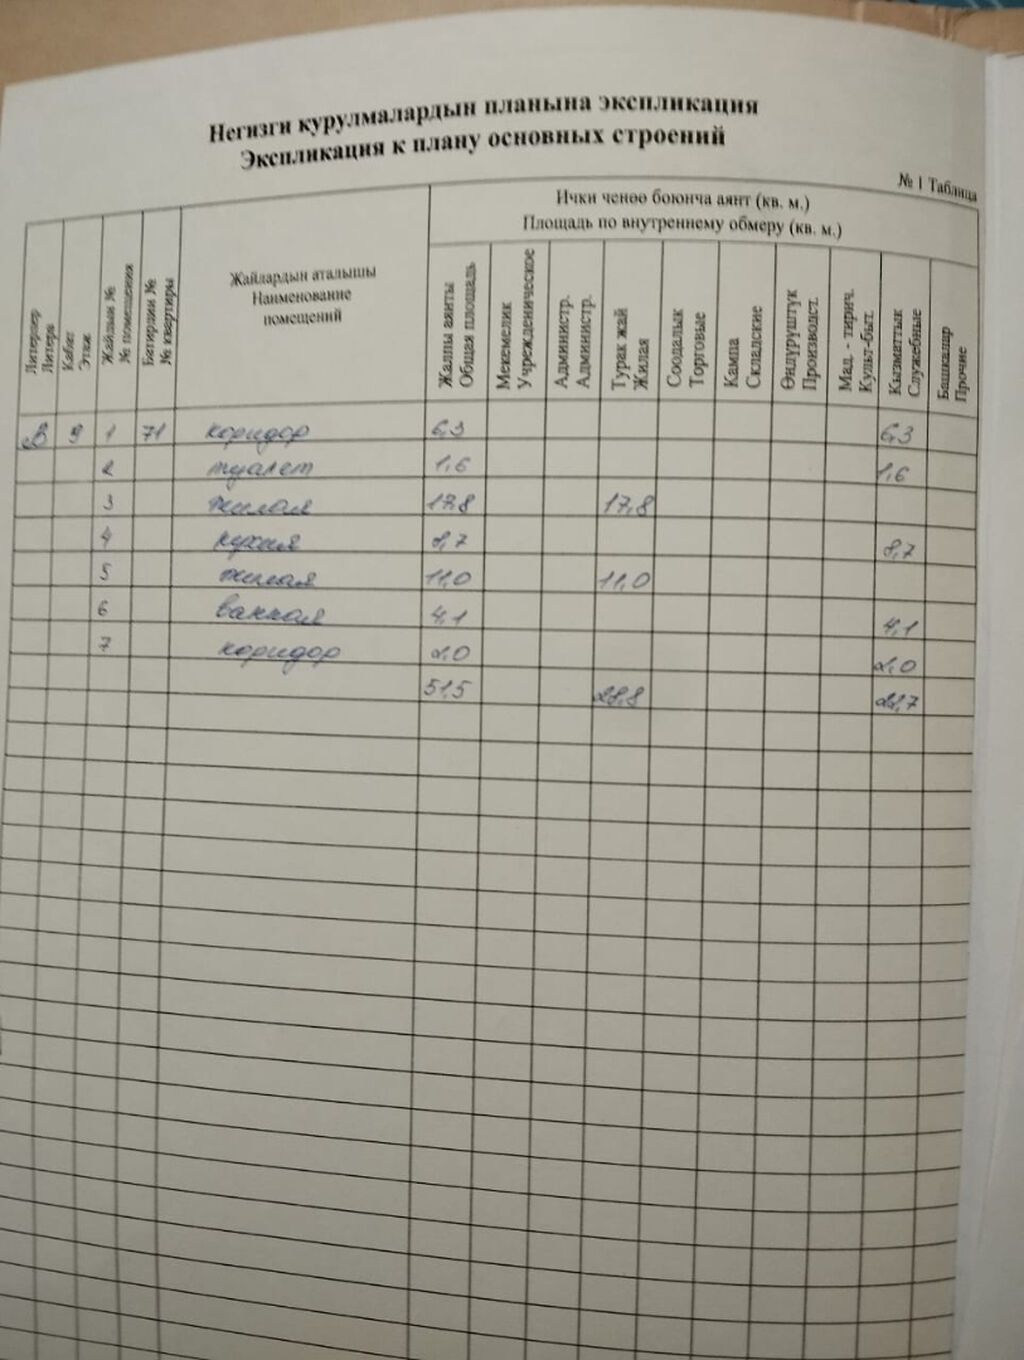 Негизги курулмалардын планына экспликация
Экспликация к плану основных строений
№ 1 Таблица
Литерлер Литера
Кабат Этаж
Жайдын № № помещения
Батирдин № № квартиры
Жайлардын аталышы
Наименование
помещений
Ички ченөө боюнча аянт (кв. м.)
Площадь по внутреннему обмеру (кв. м.)
Жалпы аянты Общая площадь
Мекемелик Учрежденническое
Администр. Администр.
Турак жай Жилая
Соодалык Торговые
Кампа Складские
Өндүрүштүк Производст.
Мад. - тирич. Культ-быт.
Кызматтык Служебные
Башкалар Прочие
В 9 1 71 коридор 6,3 6,3
2 туалет 1,6 1,6
3 жилая 17,8 17,8
4 кухня 8,7 8,7
5 жилая 11,0 11,0
6 ванная 4,1 4,1
7 коридор 2,0 2,0
51,5 28,8 22,7